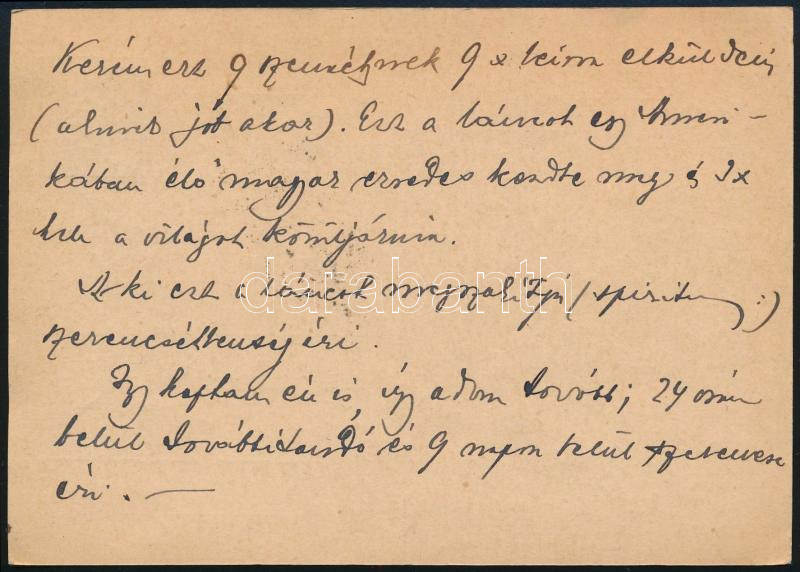 Kérem ezt 9 személynek 9 x leírva elküldeni
(akinek jót akar). Ezt a láncot egy Ameri-
kában élő magyar ezredes kezdte meg és 9x
kell a világot körüljárnia.
Aki ezt a láncot megszakítja (spiritus :)
szerencsétlenség éri.
Így kaptam én is így adom tovább; 24 órán
belül továbbítandó és 9 napon belül szerencse
éri. —
darabanth